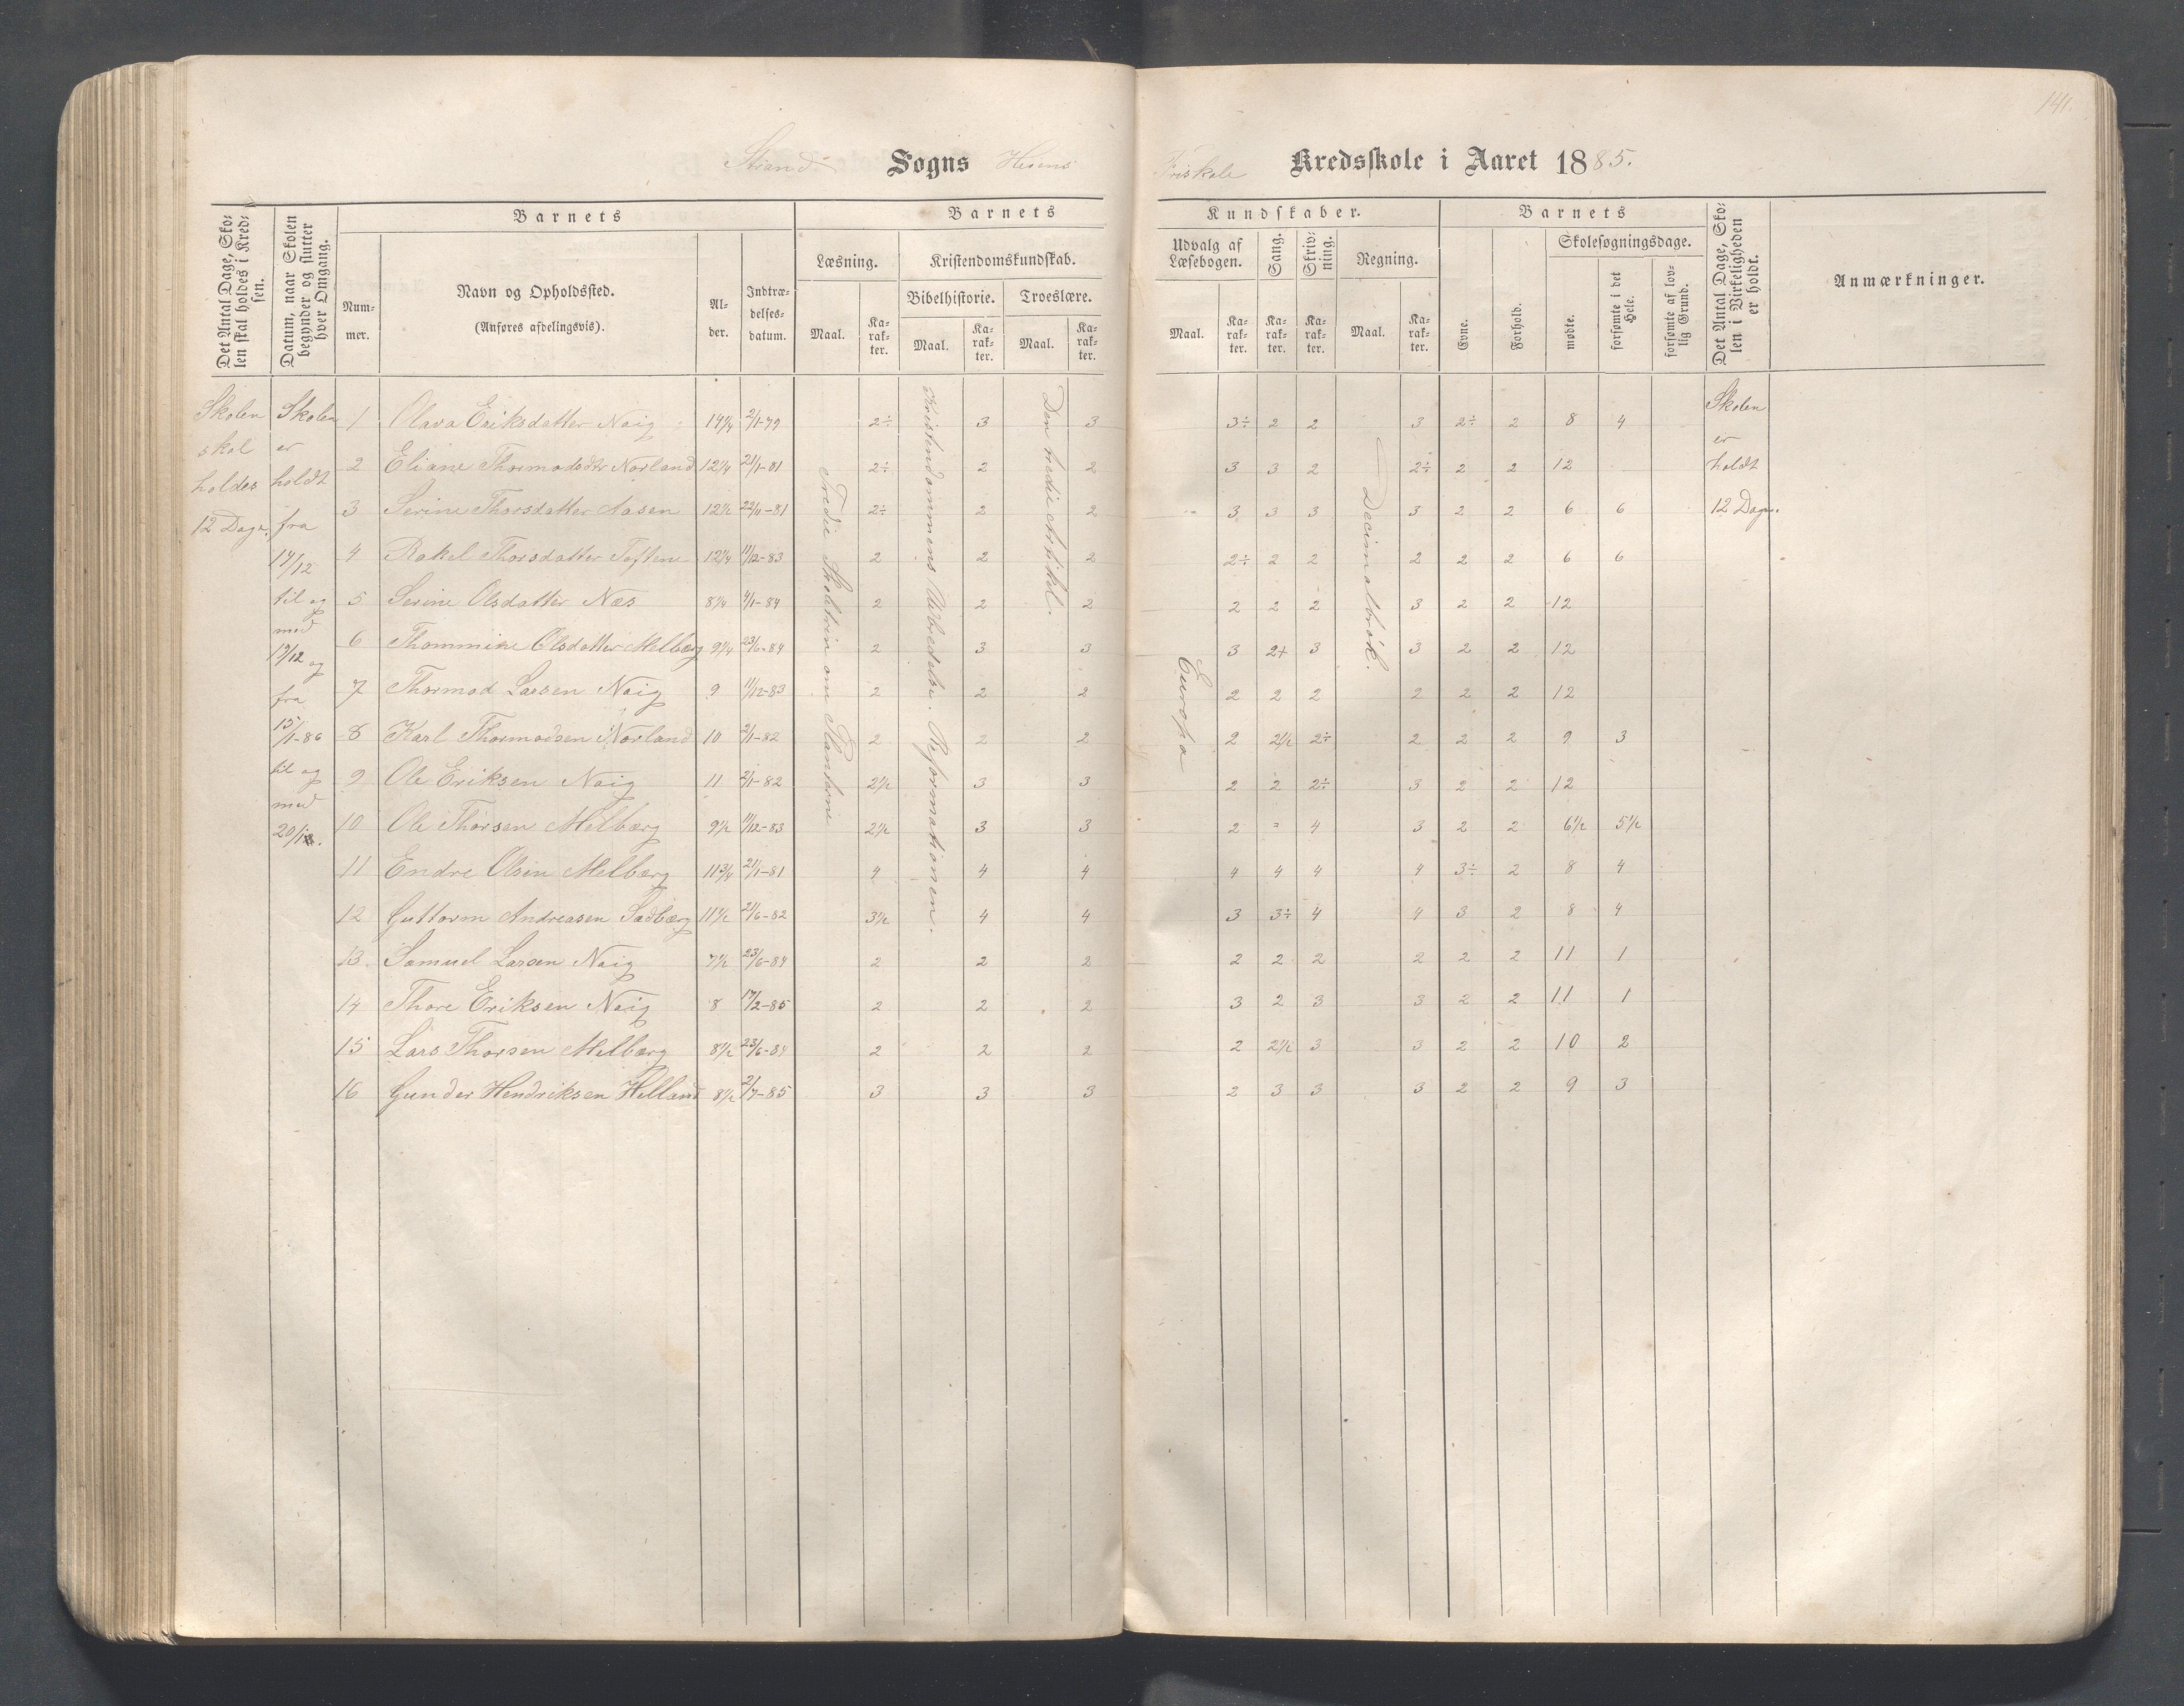 141.
Strand Sogns
Friskole Kredsskole i Aaret 1885.
Det Antal Dage, Skolen skal holdes i Kredsen.
Datum, naar Skolen begynder og slutter hver Omgang.
Barnets
Nummer.
Navn og Opholdssted.
(Anføres afdelingsvis).
Alder.
Indtrædelsesdatum.
Barnets
Læsning.
Maal.
Karakter.
Kristendomskundskab.
Bibelhistorie.
Maal.
Karakter.
Troeslære.
Maal.
Karakter.
Kundskaber.
Udvalg af Læsebogen.
Maal.
Karakter.
Sang.
Karakter.
Skrivning.
Karakter.
Regning.
Maal.
Karakter.
Barnets
Evne.
Forhold.
Skolesøgningsdage.
mødte.
forsømte i det Hele.
forsømte af lovlig Grund.
Det Antal Dage, Skolen i Virkeligheden er holdt.
Anmærkninger.
Skolen
skal
holdes
12 Dage.
Skolen
er
holdt
fra
14/12
til og
med
19/12 og
fra
15/1-86
til og
med
20/1
Tredie Skoletrin om Planterne
Kristendommens Udbredelse. Reformationen.
Den tredie Artikel.
Europa
Decimalbrøk.
Skolen
er
holdt
12 Dage.
1 Olava Eriksdatter Naig 14 1/4 2/1-79 2÷ 3 3 3÷ 2 2 3 2÷ 2 8 4
2 Eliane Thormodsdtr Norland 12 1/4 21/1-81 2÷ 2 2 3 3 2 2÷ 2 2 12
3 Serine Thorsdatter Aasen 12 1/2 22/11-81 2÷ 2 2 3 3 3 3 2 2 6 6
4 Rakel Thorsdatter Toftene 12 1/4 11/12-83 2 2 2 2÷ 2 2 2 2 2 6 6
5 Serine Olsdatter Næs 8 1/4 4/1-84 2 2 2 2 2 2 3 2 2 12
6 Thommine Olsdatter Melbærg 9 1/4 23/6-84 2 3 3 3 2+ 3 3 2 2 12
7 Thormod Larsen Naig 9 11/12-83 2 2 2 2 2 2 2 2 2 12
8 Karl Thormodsen Norland 10 2/1-82 2 2 2 2 2 1/2 2÷ 2 2 2 9 3
9 Ole Eriksen Naig 11 2/1-82 2 1/2 3 3 2 2 2÷ 3 2 2 12
10 Ole Thorsen Melbærg 9 1/2 11/12-83 2 1/2 3 3 2 = 4 3 2 2 6 1/2 5 1/2
11 Endre Olsen Melbærg 11 3/4 21/1-81 4 4 4 4 4 4 4 3÷ 2 8 4
12 Guttorm Andreasen Sadbærg 11 1/2 21/6-82 3 1/2 4 4 3 3÷ 4 4 3 2 8 4
13 Samuel Larsen Naig 7 1/2 23/6-84 2 2 2 2 2 2 2 2 2 11 1
14 Thore Eriksen Naig 8 17/2-85 2 2 2 3 2 3 3 2 2 11 1
15 Lars Thorsen Melbærg 8 1/2 23/6-84 2 2 2 2 2 1/2 3 3 2 2 10 2
16 Gunder Hendriksen Helland 8 1/2 2/7-85 3 3 3 2 3 3 3 2 2 9 3